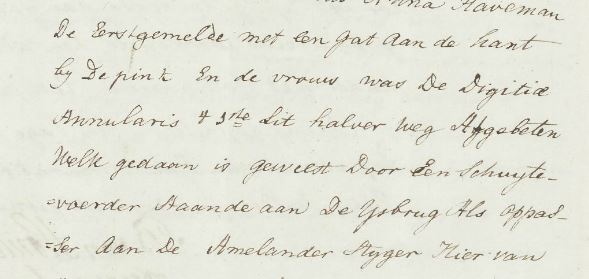 Anna Haveman
De Eerstgemelde met een gat aan de hant
by De pink En de vrouw was De Digitiæ
Annularis 't 3de Lit halver weg Afgebeten
Welk gedaan is geweest Door Een Schuyte-
=voerder Staande aan De Ysbrug Als oppas-
=ser Aan De Amelander Styger Hier van